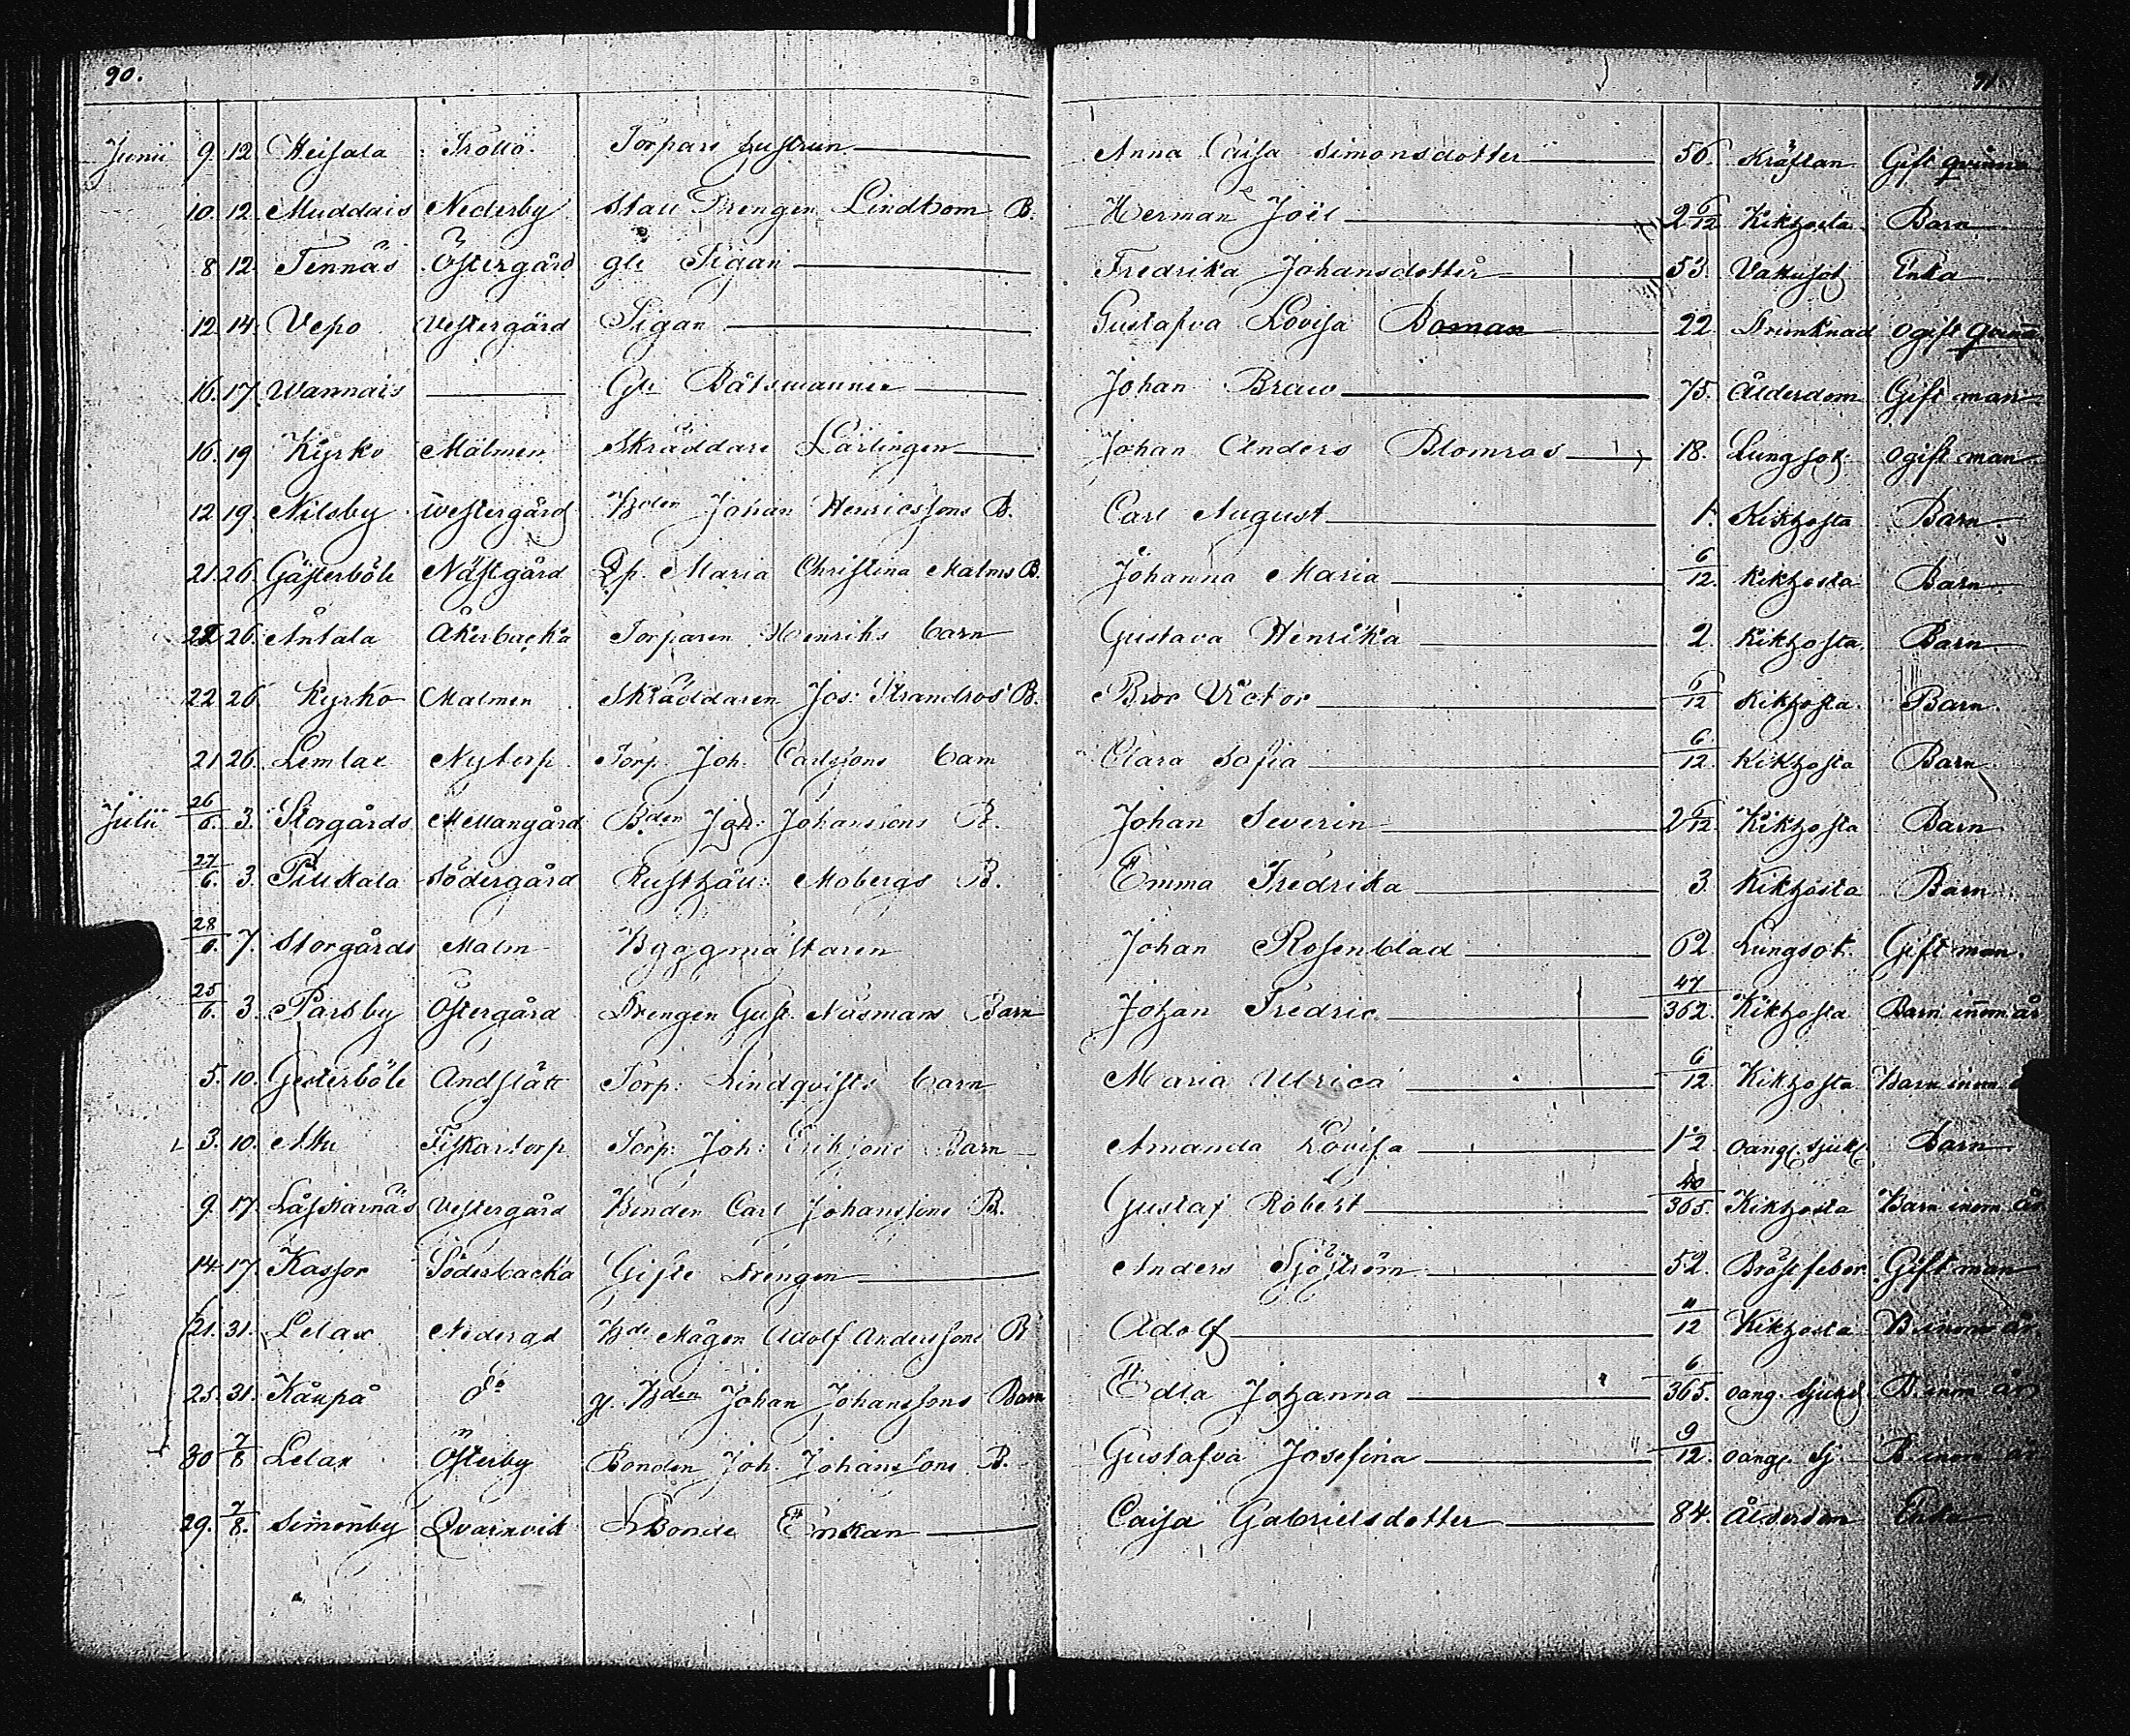 90. 91.
Junii 9. 12 Heisala Tröllö Torpare hustrun Anna Caisa Simonsdotter 56. Kräftan Gift qvinna
10. 12 Muddais Nederby Stall Drengen Lindbom B. Herman Joël 2 6/12 Kikhosta Barn
8 12. Tennäs Östergård gle Pigan Fredrika Johansdotter 53. Vattusot Enka
12 14. Vepo Vestergård Pigan Gustafva Lovisa Boman 22 Drunknad ogift qvinna
16. 17. Wannais Gle Båtsmannen Johan Braw 75. Ålderdom Gift man
16. 19 Kyrko Malmen Skräddare Lärlingen Johan Anders Blomros 18. Lungsot ogift man
12 19. Nilsby Westergård Bden Johan Henricssons B. Carl August 1. Kikhosta Barn
21. 26. Gästerböle Nästgård Qp. Maria Christina Malms B. Johanna Maria 6/12. Kikhosta Barn
22 26. Antala Åkerbacka Torparen Henriks barn Gustava Henrika 2. Kikhosta Barn
22 26 Kyrko Malmen Skräddaren Jos: Strandros B. Bror Victor 6/12 Kikhosta Barn
21 26. Lemlax Nytorp Torp. Joh. Carlssons barn Clara Sofia 6/12. Kikhosta Barn
Julii 26/6. 3. Storgårds Mellangård Bden Joh: Johanssons B. Johan Severin 2 6/12. Kikhosta Barn
27/6. 3. Piukala Södergård Rusthåll: Mobergs B. Emma Fredrika 3 Kikhosta Barn
28/6. 7. Storgårds Malm Byggmästaren Johan Rosenblad 62 Lungsot. Gift man.
25/6. 3. Parsby Östergård Drengen Gust. Nüsmans Barn Johan Fredric 47/362. Kikhosta Barn inom år
5. 10. Gesterböle Andstätt Torp: Lindqvists barn Maria Ulrica 6/12. Kikhosta Barn inom
3. 10. Attu Fiskartorp Torp: Joh: Erikssons Barn Amanda Lovisa 1 2 oang. sjukd. Barn
9. 17. Låfskärnäs Vestergård Bonden Carl Johanssons B. Gustaf Robert 40/365. Kikhosta Barn inom år
14 17. Kassor Söderbacka Gifte Drengen Anders Sjöström 52. Bröstfeber Gift man
21. 31. Lelax Nedergd Bde Mågen Adolf Anderssons B Adolf 11/12 Kikhosta B. inom år.
25. 31. Kåupå do gl. Bden Johan Johanssons Barn Edla Johanna 6/365. oang. Sjukd. B. inom år
30 7/8 Lelax Österby Bonden Joh. Johanssons B. Gustafva Josefina 9/12. oang. Sj. B. inom år
29. 7/8. Simonby Qvarnvik Bonde Enkan Caisa Gabrielsdotter 84. Ålderdom Enka